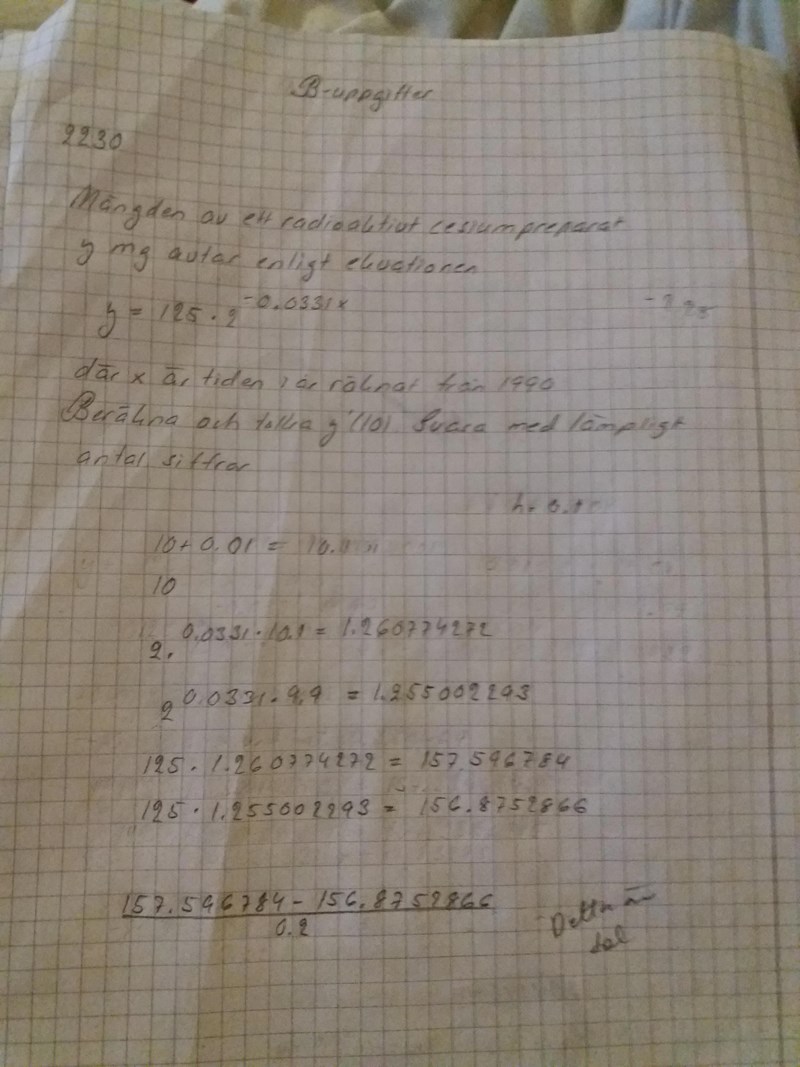 B-uppgifter
2230
Mängden av ett radioaktivt cesiumpreparat
y mg avtar enligt ekvationen
y = 125 · 2^-0.0331x
där x är tiden i år räknat från 1990
Beräkna och tolka y'(10) Svara med lämpligt
antal siffror
10 + 0.01 =
10
2 · ^0.0331·10.1 = 1.260774272
2^0.0331·9.9 = 1.255002293
125 · 1.260774272 = 157.596784
125 · 1.255002293 = 156.8752866
157.596784 - 156.8752866
0.2
Detta är
fel